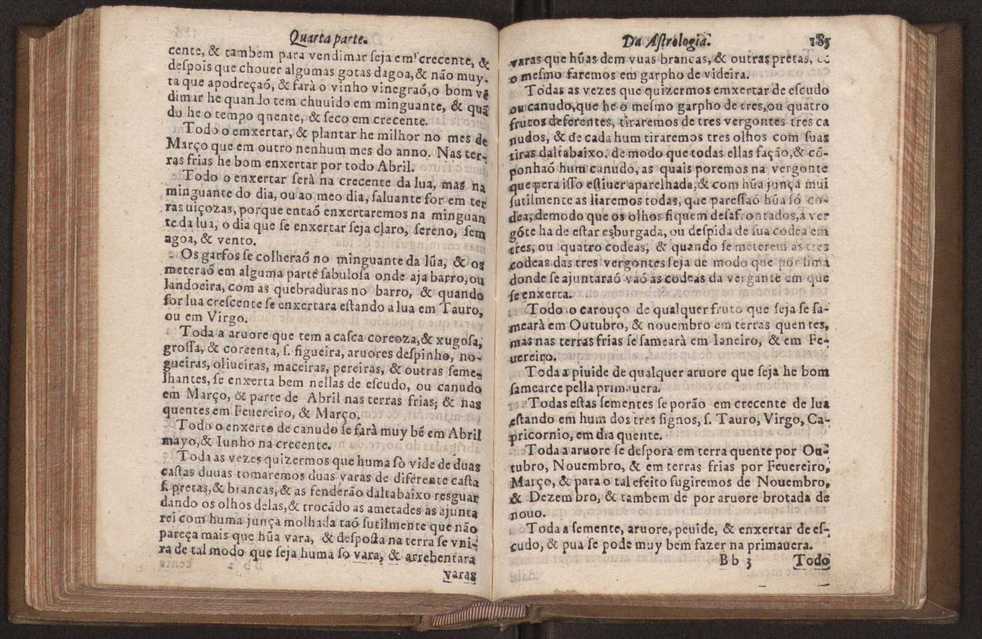 Quarta parte.
cente, & tambem para vendimar seja em crecente, &
despois que chouer algumas gotas dagoa, & não muy-
ta que apodreçaõ, & farà o vinho vinegraõ, o bom vẽ
dimar he quando tem chuuido em minguante, & quã
do he o tempo quente, & seco em crecente.
Todo o emxertar, & plantar he milhor no mes de
Março que em outro nenhum mes do anno. Nas ter-
ras frias he bom enxertar por todo Abril.
Todo o enxertar serà na crecente da lua, mas na
minguante do dia, ou ao meo dia, saluante for em ter
ras uiçozas, porque entaõ enxertaremos na minguan
te da lua, o dia que se enxertar seja claro, sereno, sem
agoa, & vento.
Os garfos se colheraõ no minguante da lũa, & os
meteraõ em alguma parte sabulosa onde aja barro, ou
landoeira, com as quebraduras no barro, & quando
for lua crescente se enxertara estando a lua em Tauro,
ou em Virgo.
Toda a aruore que tem a casca coreoza, & xugosa,
grossa, & coreenta, s. figueira, aruores despinho, no-
gueiras, oliueiras, maceiras, pereiras, & outras seme-
lhantes, se enxerta bem nellas de escudo, ou canudo
em Março, & parte de Abril nas terras frias; & nas
quentes em Feuereiro, & Março.
Todo o enxerto de canudo se farà muy bẽ em Abril
mayo, & Iunho na crecente.
Toda as vezes quizermos que huma sò vide de duas
castas duuas tomaremos duas varas de diferente casta
s. pretas, & brancas, & as fenderão daltabaixo resguar
dando os olhos delas, & trocãdo as ametades as ajunta
rei com huma junça molhada taõ sutilmente que não
pareça mais que hũa vara, & desposta na terra se vni-
ra de tal modo que seja huma so vara, & arrebentara
varas
Da Astrologia. 185
varas que hũas dem vuas brancas, & outras pretas, &
o mesmo faremos em garpho de videira.
Todas as vezes que quizermos emxertar de escudo
ou canudo, que he o mesmo garpho de tres, ou quatro
frutos deferentes, tiraremos de tres vergontes tres ca
nudos, & de cada hum tiraremos tres olhos com suas
tiras daltabaixo, de modo que todas ellas fação, & cõ-
ponhaõ hum canudo, as quais poremos na vergonte
que pera isso estiuer aparelhada, & com hũa junça mui
sutilmente as liaremos todas, que paressaõ hũa sò co-
dea; demodo que os olhos fiquem desafrontados, a ver
gõte ha de estar esburgada, ou despida de sua codea em
tres, ou quatro codeas, & quando se meterem as tres
codeas das tres vergontes seja de modo que por sima
donde se ajuntaraõ vaõ as codeas da vergante em que
se enxerta.
Todo o carouço de qualquer fruto que seja se sa-
mearà em Outubro, & nouembro em terras quentes,
mas nas terras frias se samearà em Ianeiro, & em Fe-
uereiro.
Toda a piuide de qualquer aruore que seja he bom
samearce pella primauera.
Todas estas sementes se porão em crecente de lua
estando em hum dos tres signos, s. Tauro, Virgo, Ca-
pricornio, em dia quente.
Toda a aruore se despora em terra quente por Ou-
tubro, Nouembro, & em terras frias por Feuereiro,
Março, & para o tal efeito sugiremos de Nouembro,
& Dezembro, & tambem de por aruore brotada de
nouo.
Toda a semente, aruore, peuide, & enxertar de es-
cudo, & pua se pode muy bem fazer na primauera.
Bb 3 Todo